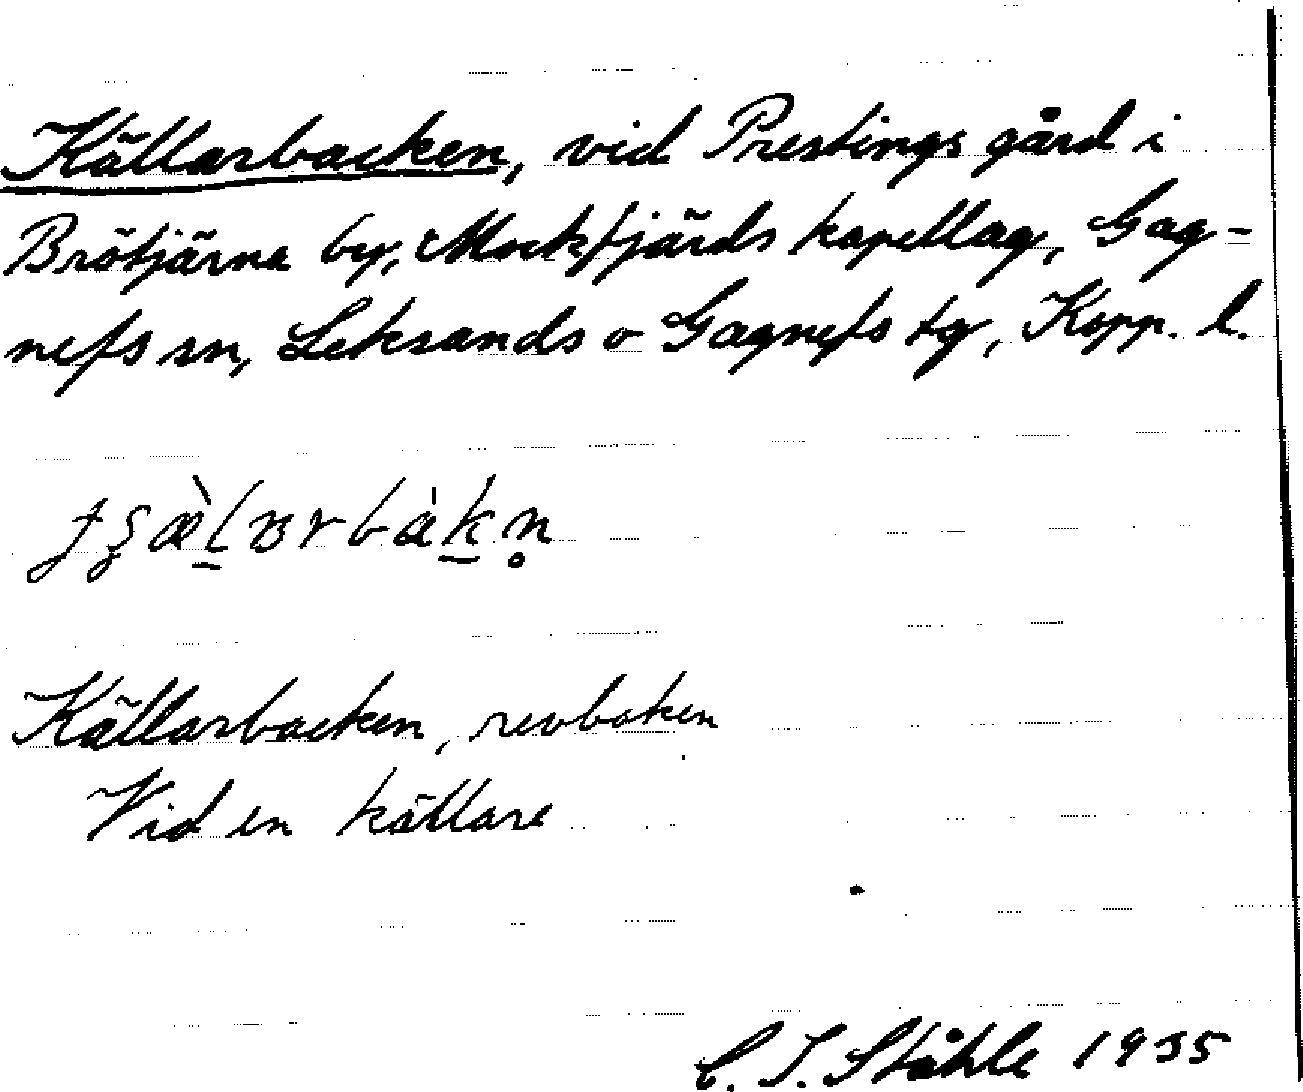 Källarbacken, vid Prestings gård i
Brötjärna by, Mockfjärds kapellag, Gag-
nefs sn, Leksands o Gagnefs tg, Kopp. l.
Källarbacken, revboken
Vid en källare
C. I. Ståhle 1935